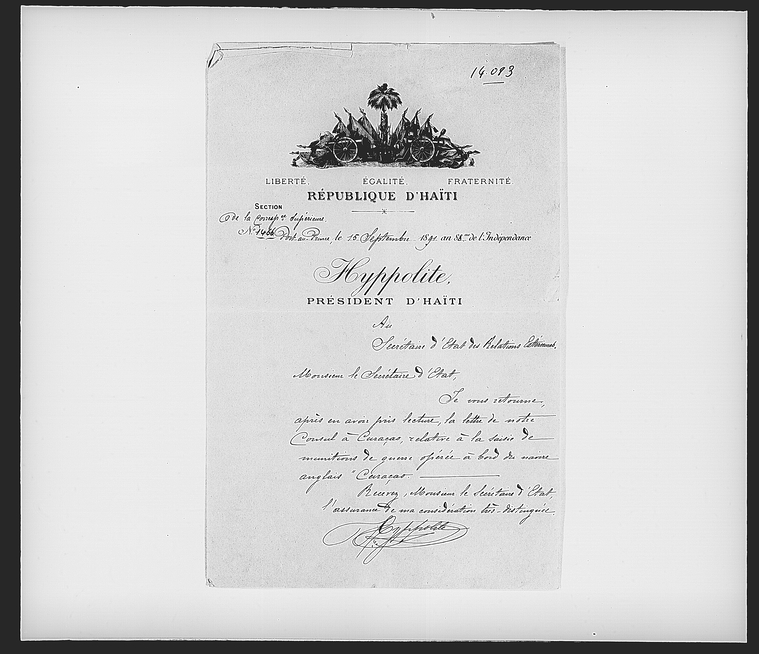 14.093
LIBERTÉ, ÉGALITÉ, FRATERNITÉ.
RÉPUBLIQUE D'HAÏTI
SECTION
de la Corresp.ce Supérieure.
N° 1466
Port-au-Prince, le 15 Septembre 1891. an 88me de l'Indépendance
Hyppolite,
PRÉSIDENT D'HAÏTI
Au
Secrétaire d'Etat des Relations Extérieures.
Monsieur le Secrétaire d'Etat,
Je vous retourne,
après en avoir pris lecture, la lettre de notre
Consul à Curaçao, relative à la saisie de
munitions de guerre opérée à bord du navire
anglais "Curacao.
Recevez, Monsieur le Secrétaire d'Etat,
l'assurance de ma considération très-distinguée
Hyppolite